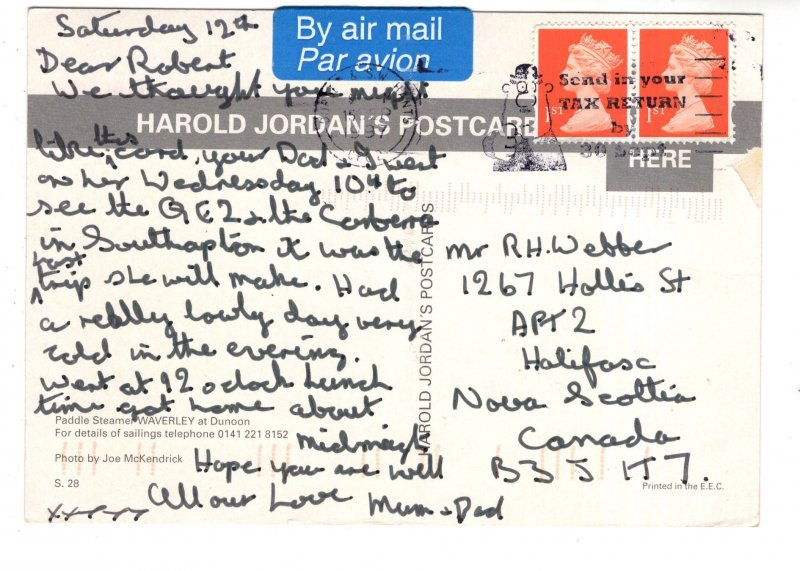 Saturday 12th
Dear Robert
We thought you might
like this card, your Dad & I went
on her Wednesday 10th to
see the QE2 & the Canberra
in Southapton it was the
last
trip she will make. Had
a really lovly day very
cold in the evening.
Went at 12 oclock lunch
time got home about
midnight
Hope you are well
All our Love
Mum & Dad
xxxxxx
By air mail
Par avion
1ST
1ST
Send in your
TAX RETURN
by
30 Sept
HAROLD JORDAN'S POSTCARD
HERE
HAROLD JORDAN'S POSTCARDS
Mr R.H. Webber
1267 Hollis St
APT 2
Halifasc
Nova Scottia
Canada
B3J 1T7.
Paddle Steamer WAVERLEY at Dunoon
For details of sailings telephone 0141 221 8152
Photo by Joe McKendrick
S. 28
Printed in the E.E.C.